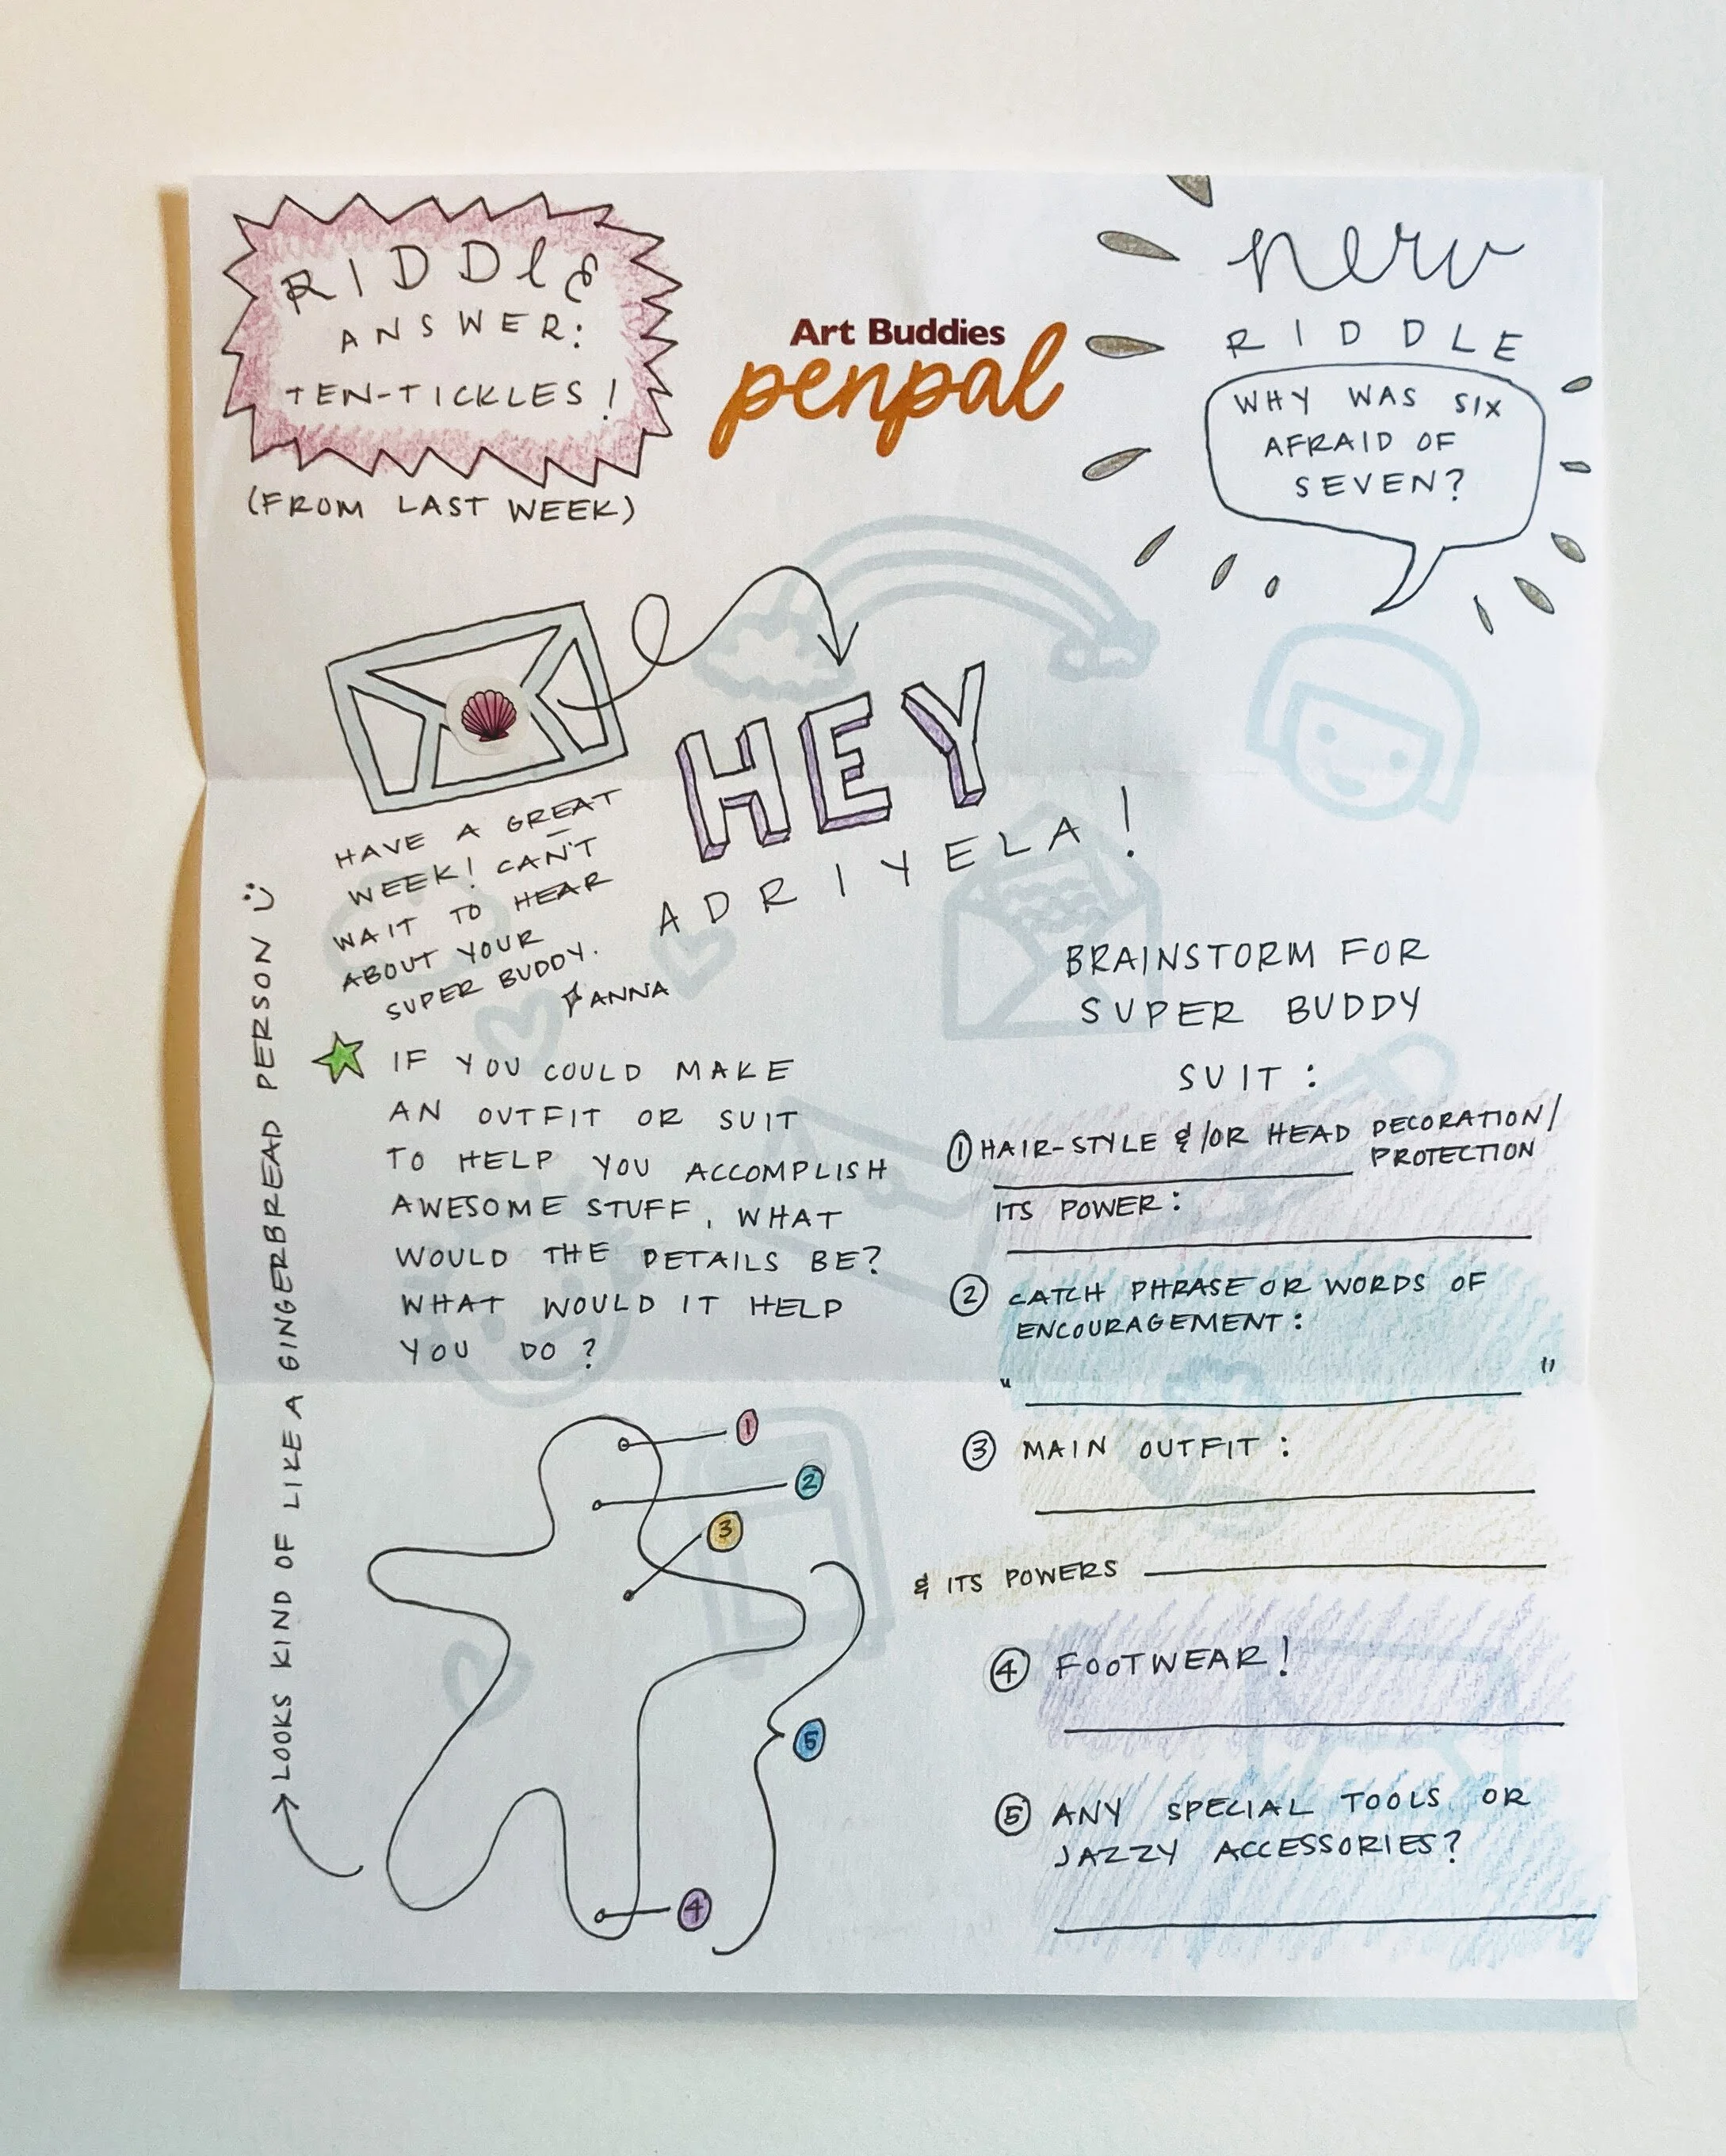 RIDDlE
ANSWER:
TEN-TICKLES!
(FROM LAST WEEK)
Art Buddies
penpal
new
RIDDLE
WHY WAS SIX
AFRAID OF
SEVEN?
HEY
ADRIYELA!
HAVE A GREAT
WEEK! CAN'T
WAIT TO HEAR
ABOUT YOUR
SUPER BUDDY.
ANNA
IF YOU COULD MAKE
AN OUTFIT OR SUIT
TO HELP YOU ACCOMPLISH
AWESOME STUFF, WHAT
WOULD THE DETAILS BE?
WHAT WOULD IT HELP
YOU DO?
LOOKS KIND OF LIKE A GINGERBREAD PERSON :)
1
2
3
5
4
BRAINSTORM FOR
SUPER BUDDY
SUIT:
① HAIR-STYLE &/OR HEAD DECORATION/
PROTECTION
ITS POWER:
② CATCH PHRASE OR WORDS OF
ENCOURAGEMENT:
" "
③ MAIN OUTFIT:
& ITS POWERS
④ FOOTWEAR!
⑤ ANY SPECIAL TOOLS OR
JAZZY ACCESSORIES?